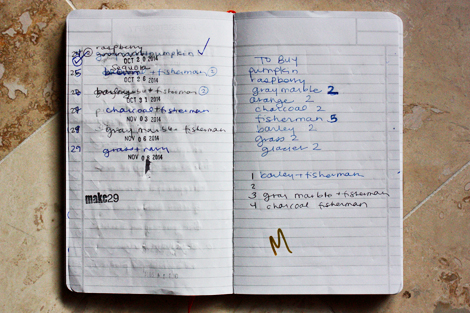 raspberry
24 pumpkin ✓
OCT 20 2014
Sequoia
25 + fisherman 2
OCT 26 2014
26 + fisherman 2
OCT 31 2014
charcoal + fisherman
NOV 03 2014
28 gray marble + fisherman
NOV 06 2014
29 grass + navy
NOV 08 2014
make29
TO BUY
pumpkin
raspberry
gray marble 2
orange 2
charcoal 2
fisherman 5
barley 2
grass 2
glacier 2
1 barley + fisherman
2
3 gray marble + fisherman
4 charcoal fisherman
M